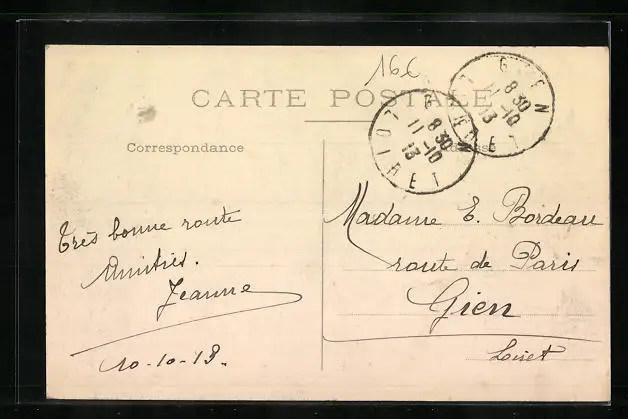 16€
CARTE POSTALE
Correspondance
Adresse
GIEN
8 30
11 -10
13
LOIRET
GIEN
8 30
11 -10
13
ET
Très bonne route
Amitiés.
Jeanne
10-10-13.
Madame E. Bordeau
route de Paris
Gien
Loiret